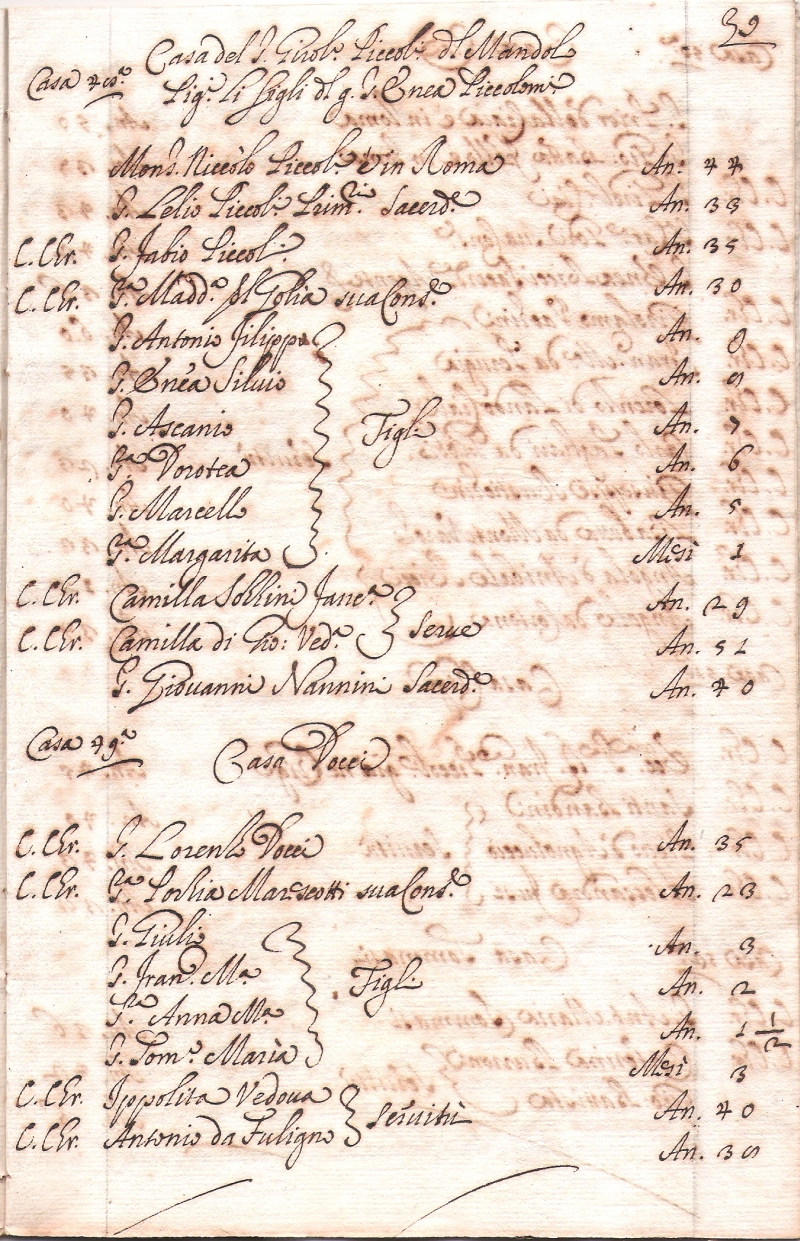 59
Casa del S. Girol.º Piccol.i del Mandol.
Casa 4
Pig. li figli del q. S. Enea Piccolom.i
Mons. Niccolò Piccol.i è in Roma An. 44
S. Lelio Piccol.i Prim. Sacerd.e An. 33
C. Chr. S. Fabio Piccol.i An. 35
C. Chr. S.ra Madd.a del Golia sua Cons.e An. 30
S. Antonio Filippo An.
S. Enea Silvio An.
S. Ascanio Figli An. 7
S.ra Dorotea An. 6
S. Marcello An. 5
S.ra Margarita Mesi 1
C. Chr. Camilla Sozzini Sanese An. 29
C. Chr. Camilla di Gio: Ved.a Serve An. 51
S. Giovanni Nannini Sacerd.e An. 40
Casa 49.a Casa Docci
C. Chr. S. Lorenzo Docci An. 35
C. Chr. S.ra Porzia Marescotti sua Cons.e An. 23
S. Giulio An. 3
S. Fran.o M.a Figli An. 2
S.ra Anna M.a An. 1 1/2
S. Tom.o Maria Mesi 3
C. Chr. Ippolita Vedova An. 40
C. Chr. Antonio da Fuligno Servitù An. 30